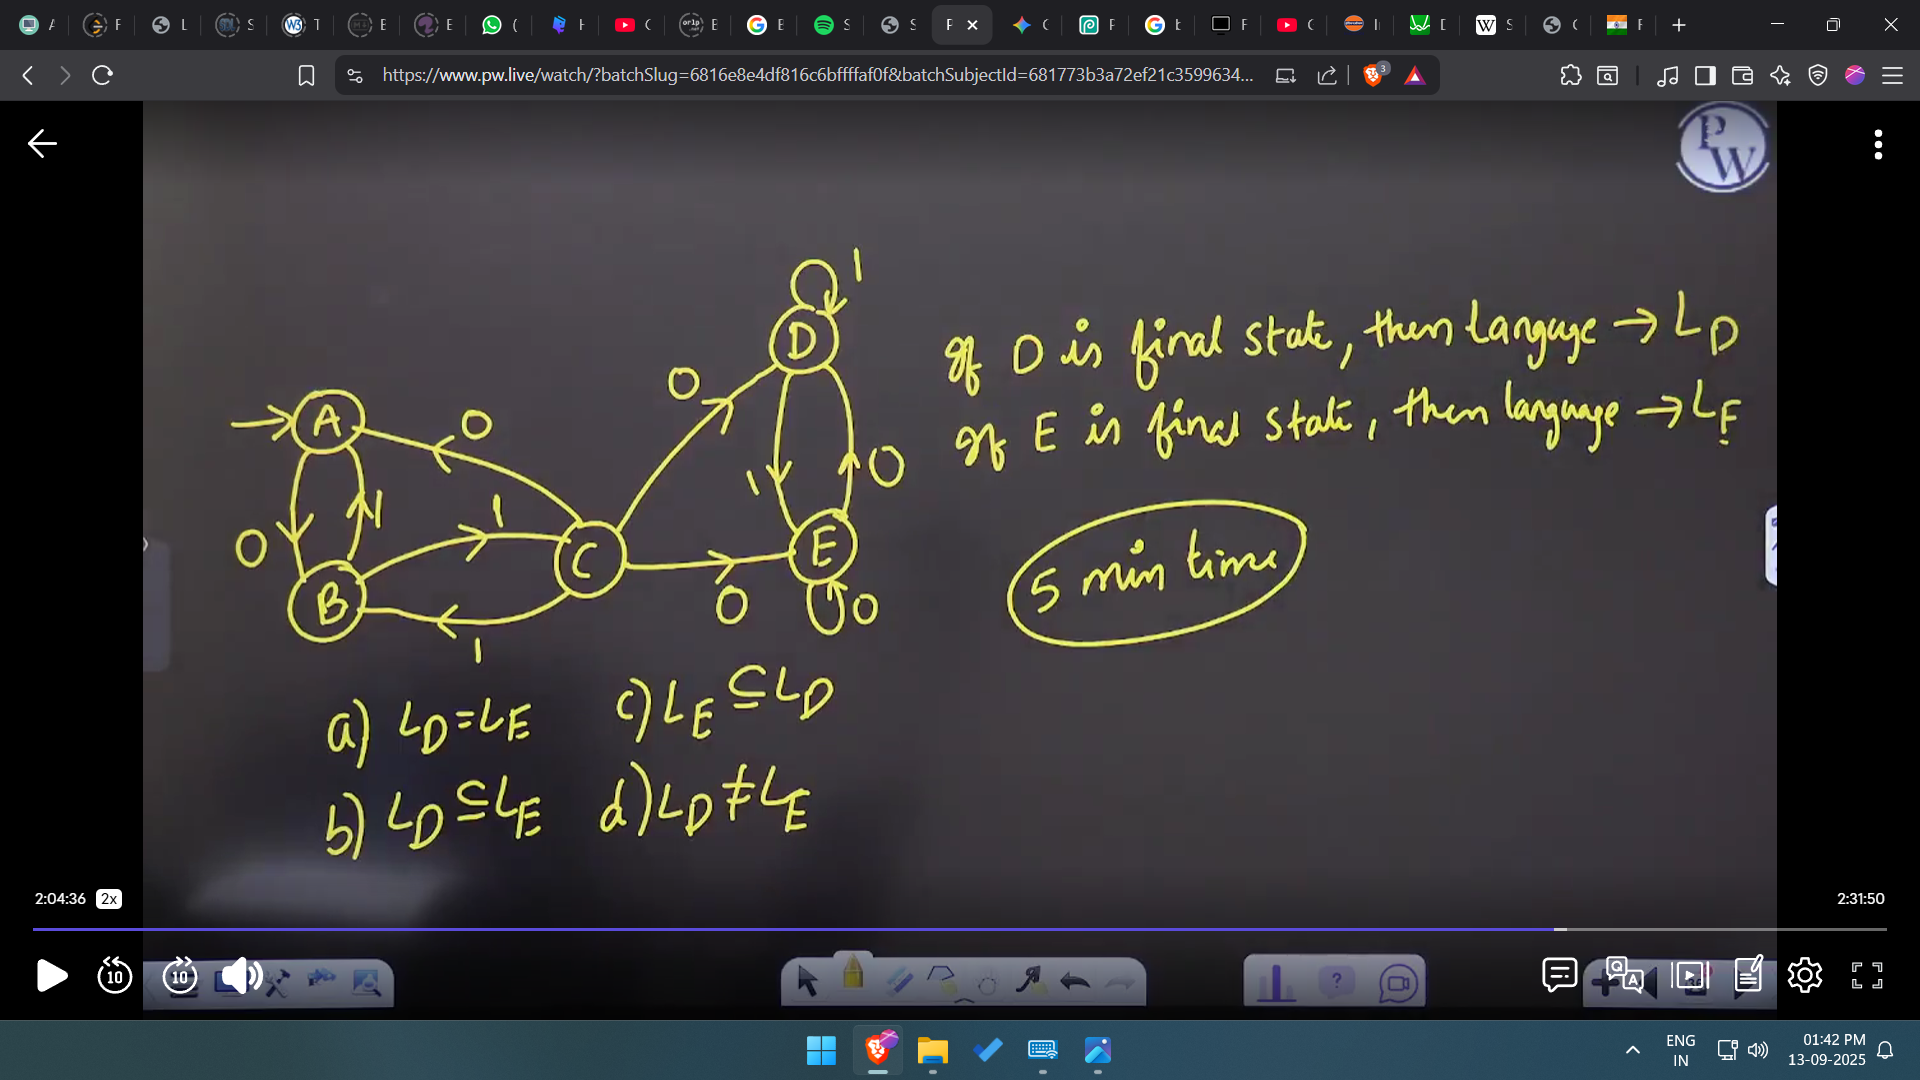 https://www.pw.live/watch/?batchSlug=6816e8e4df816c6bffffaf0f&batchSubjectId=681773b3a72ef21c3599634...
3
PW
1
D
If D is final state, then languge → L_D
0
A
0
If E is final state, then language → L_E
0
1
1
1
0
5 min time
C
E
B
0
0
1
a) L_D = L_E
c) L_E ⊆ L_D
b) L_D ⊆ L_E
d) L_D ≠ L_E
2:04:36 2x
2:31:50
10
10
ENG
IN
01:42 PM
13-09-2025